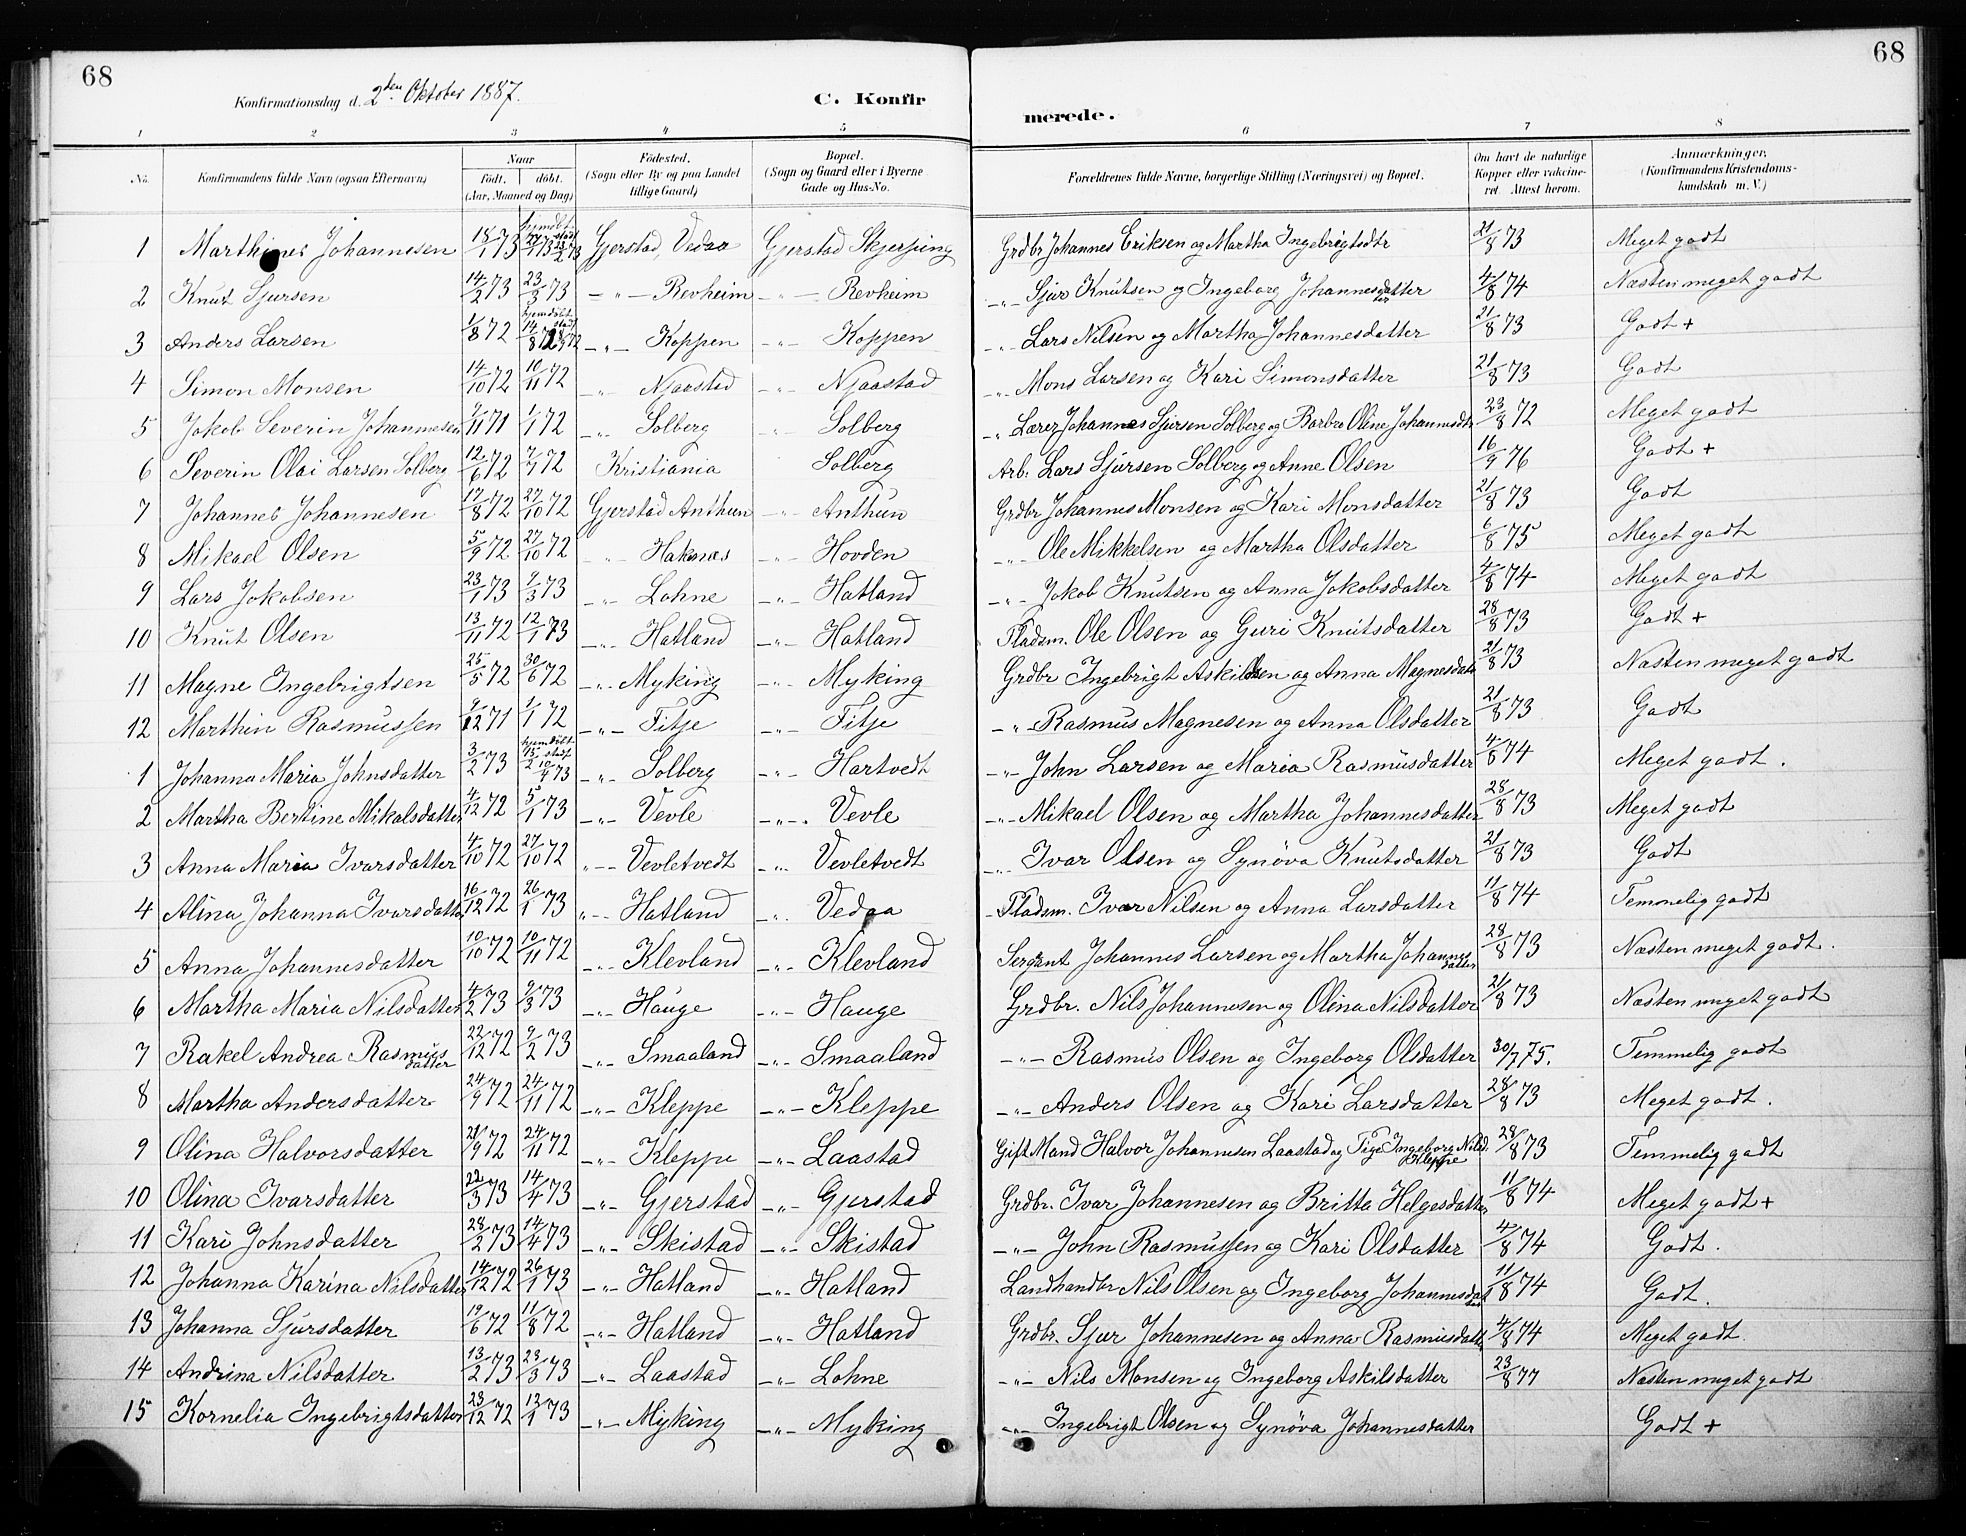 68
68
Konfirmationsdag d. 2den Oktober 1887.
C. Konfirmerede.
1 2 3 4 5 6 7 8
No. Konfirmandens fulde Navn (ogsaa Efternavn) Naar Födt. döbt. (Aar, Maaned og Dag) Födested. (Sogn eller By og paa Landet tillige Gaard) Bopæl. (Sogn og Gaard eller i Byerne Gade og Hus-No. Forældrenes fulde Navne, borgerlige Stilling (Næringsvei) og Bopæl. Om havt de naturlige Kopper eller vakcineret. Attest herom. Anmærkninger, (Konfirmandens Kristendomskundskab m. V.)
1 Marthines Johannesen 18/1 73 hjemdöbt stadf. 23/2 73 Gjerstad, Vedaa Gjerstad Skjerjing Grdbr Johannes Eriksen og Martha Ingebrigtsdtr 21/8 73 Meget godt
2 Knut Sjursen 14/2 73 23/3 73 -"- Revheim -"- Revheim -"- Sjur Knutsen og Ingeborg Johannesdatter 4/8 74 Næsten meget godt
3 Anders Larsen 1/8 72 hjemdöbt 14/8 stadf. -"- Koppen -"- Koppen -"- Lars Nilsen og Martha Johannesdatter 21/8 73 Godt +
4 Simon Monsen 14/10 72 10/11 72 " Njaastad -"- Njaastad -"- Mons Larsen og Kari Simonsdatter 21/8 73 Godt
5 Jakob Severin Johannesen 7/11 71 1/1 72 -"- Solberg " Solberg -"- Lærer Johannes Sjursen Solberg og Barbro Oline Johannesdtr 23/8 72 Meget godt
6 Severin Olai Larsen Solberg 12/6 72 7/7 72 Kristiania Solberg Arb. Lars Sjursen Solberg og Anne Olsen 16/9 76 Godt +
7 Johannes Johannesen 17/8 72 27/10 72 Gjerstad Anthun -"- Anthun Grdbr Johannes Monsen og Kari Monsdatter 21/8 73 Godt
8 Mikael Olsen 5/9 72 27/10 72 " Haknæs -"- Hovden -"- Ole Mikkelsen og Martha Olsdatter 6/8 75 Meget godt
9 Lars Jokobsen 23/1 73 9/3 73 -"- Lohne -"- Hatland -"- Jokob Knutsen og Anna Jokobsdatter 4/8 74 Meget godt
10 Knut Olsen 13/11 72 12/1 73 -"- Hatland -"- Hatland Pladsm. Ole Olsen og Guri Knutsdatter 28/8 73 Godt +
11 Magne Ingebrigtsen 25/5 72 30/6 72 -"- Myking -"- Myking Grdbr Ingebrigt Askildsen og Anna Magnesdatt 21/8 73 Næsten meget godt
12 Marthin Rasmussen 9/12 71 1/1 72 -"- Fitje -"- Fitje -"- Rasmus Magnesen og Anna Olsdatter 21/8 73 Godt
1 Johanna Maria Johnsdatter 3/2 73 hjemdöbt 15/2 stadf. 10/4 73 -"- Solberg -"- Hartvedt -"- John Larsen og Maria Rasmusdatter 4/8 74 Meget godt.
2 Martha Bertine Mikalsdatter 4/12 72 5/1 73 -"- Vevle -"- Vevle -"- Mikael Olsen og Martha Johannesdatter 28/8 73 Meget godt
3 Anna Maria Ivarsdatter 4/10 72 27/10 72 -"- Vevletvedt -"- Vevletvedt -"- Ivar Olsen og Synöva Knutsdatter 21/8 73 Godt
4 Alina Johanna Ivarsdatter 16/12 72 26/1 73 -"- Hatland -"- Vedaa Pladsm. Ivar Nilsen og Anna Larsdatter 11/8 74 Temmelig godt
5 Anna Johannesdatter 10/10 72 10/11 72 -"- Klevland -"- Klevland Sergant Johannes Larsen og Martha Johannesdatter 28/8 73 Næsten meget godt.
6 Martha Maria Nilsdatter 4/2 73 9/3 73 -"- Hauge -"- Hauge Grdbr. Nils Johannesen og Olina Nilsdatter 21/8 73 Næsten meget godt
7 Rakel Andrea Rasmusdatter 22/12 72 9/2 73 -"- Smaaland -"- Smaaland -"- Rasmus Olsen og Ingeborg Olsdatter 30/7 75. Temmelig godt
8 Martha Andersdatter 24/9 72 24/11 72 -"- Kleppe -"- Kleppe -"- Anders Olsen og Kari Larsdatter 28/8 73 Meget godt.
9 Olina Halvorsdatter 21/9 72 24/11 72 -"- Kleppe -"- Laastad Gift Mand Halvor Johannesen Laastad og Pige Ingeborg Nilsd. Kleppe 28/8 73 Temmelig godt
10 Olina Ivarsdatter 22/3 73 14/4 73 -"- Gjerstad -"- Gjerstad Grdbr. Ivar Johannesen og Britta Helgesdatter 11/8 74 Meget godt +
11 Kari Johnsdatter 28/2 73 14/4 73 -"- Skistad -"- Skistad -"- John Rasmussen og Kari Olsdatter 4/8 74 Godt.
12 Johanna Karina Nilsdatter 14/12 72 26/1 73 -"- Hatland -"- Hatland Landhandler Nils Olsen og Ingeborg Johannesdatter 11/8 74 Godt.
13 Johanna Sjursdatter 19/6 72 11/8 72 -"- Hatland -"- Hatland Grdbr. Sjur Johannesen og Anna Rasmusdatter 4/8 74 Meget godt.
14 Andrina Nilsdatter 13/2 73 23/3 73 -"- Laastad -"- Lohne -"- Nils Monsen og Ingeborg Askilsdatter 23/8 77 Næsten meget godt
15 Kornelia Ingebrigtsdatter 23/12 72 12/1 73 -"- Myking -"- Myking -"- Ingebrigt Olsen og Synöva Johannesdatter Godt +